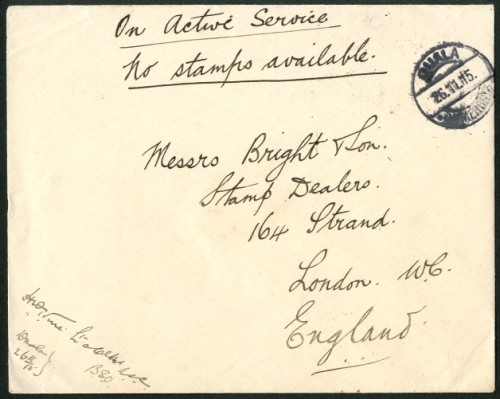 On Active Service
No stamps available.
DUALA
26.11.15.
Messrs Bright & Son.
Stamp Dealers.
164 Strand.
London. W.C.
England.